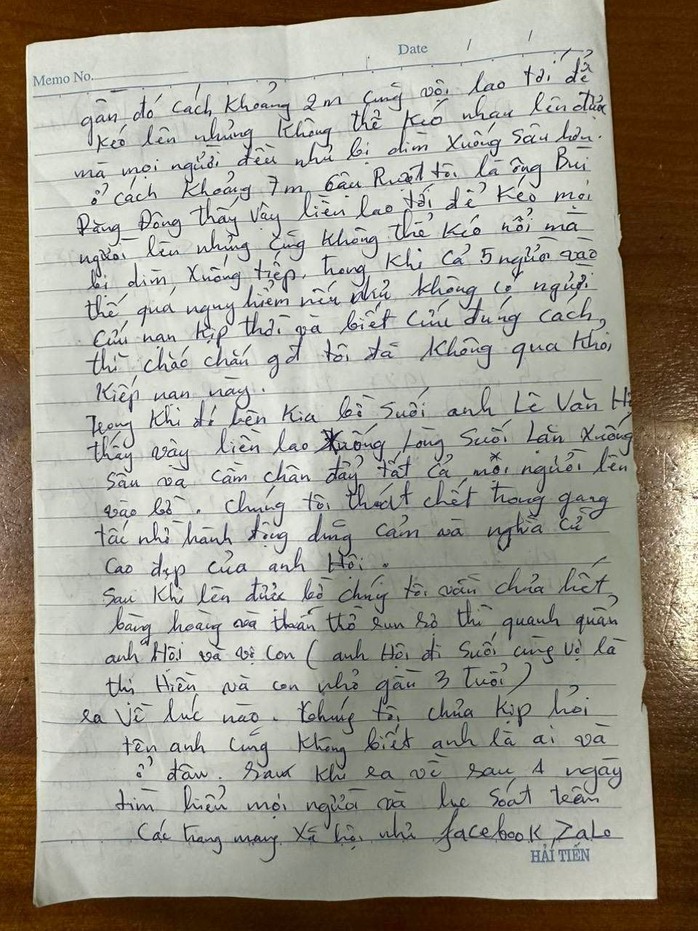 Memo No.
Date / /
gần đó cách khoảng 2m cũng vội lao tới để
kéo lên nhưng không thể kéo nhau lên được
mà mọi người đều như bị dìm xuống sâu hơn.
ở cách khoảng 7m cậu ruột tôi là ông Bùi
Đăng Đông thấy vậy liền lao tới để kéo mọi
người lên nhưng cũng không thể kéo nổi mà
bị dìm xuống tiếp. trong khi cả 5 người vào
thế quá nguy hiểm nếu như không có người
cứu nạn kịp thời và biết cứu đúng cách,
thì chắc chắn gđ tôi đã không qua khỏi
kiếp nạn này.
Trong khi đó bên kia bờ suối anh Lê Văn H
thấy vậy liền lao xuống lòng suối lặn xuống
sâu và cầm chân đẩy tất cả mọi người lên
vào bờ. chúng tôi thoát chết trong gang
tấc nhờ hành động dũng cảm và nghĩa cử
cao đẹp của anh Hội.
Sau khi lên được bờ chúng tôi vẫn chưa hết
bàng hoàng và run sợ thì quanh quẩn
anh Hội và vợ con (anh Hội đi suối cùng vợ là
thị Hiền và con nhỏ gần 3 tuổi)
ra về lúc nào. chúng tôi chưa kịp hỏi
tên anh cũng không biết anh là ai và
ở đâu. sau khi ra về sau 4 ngày
tìm hiểu mọi người và lục soát trên
các trang mạng xã hội như facebook, Zalo
HẢI TIẾN